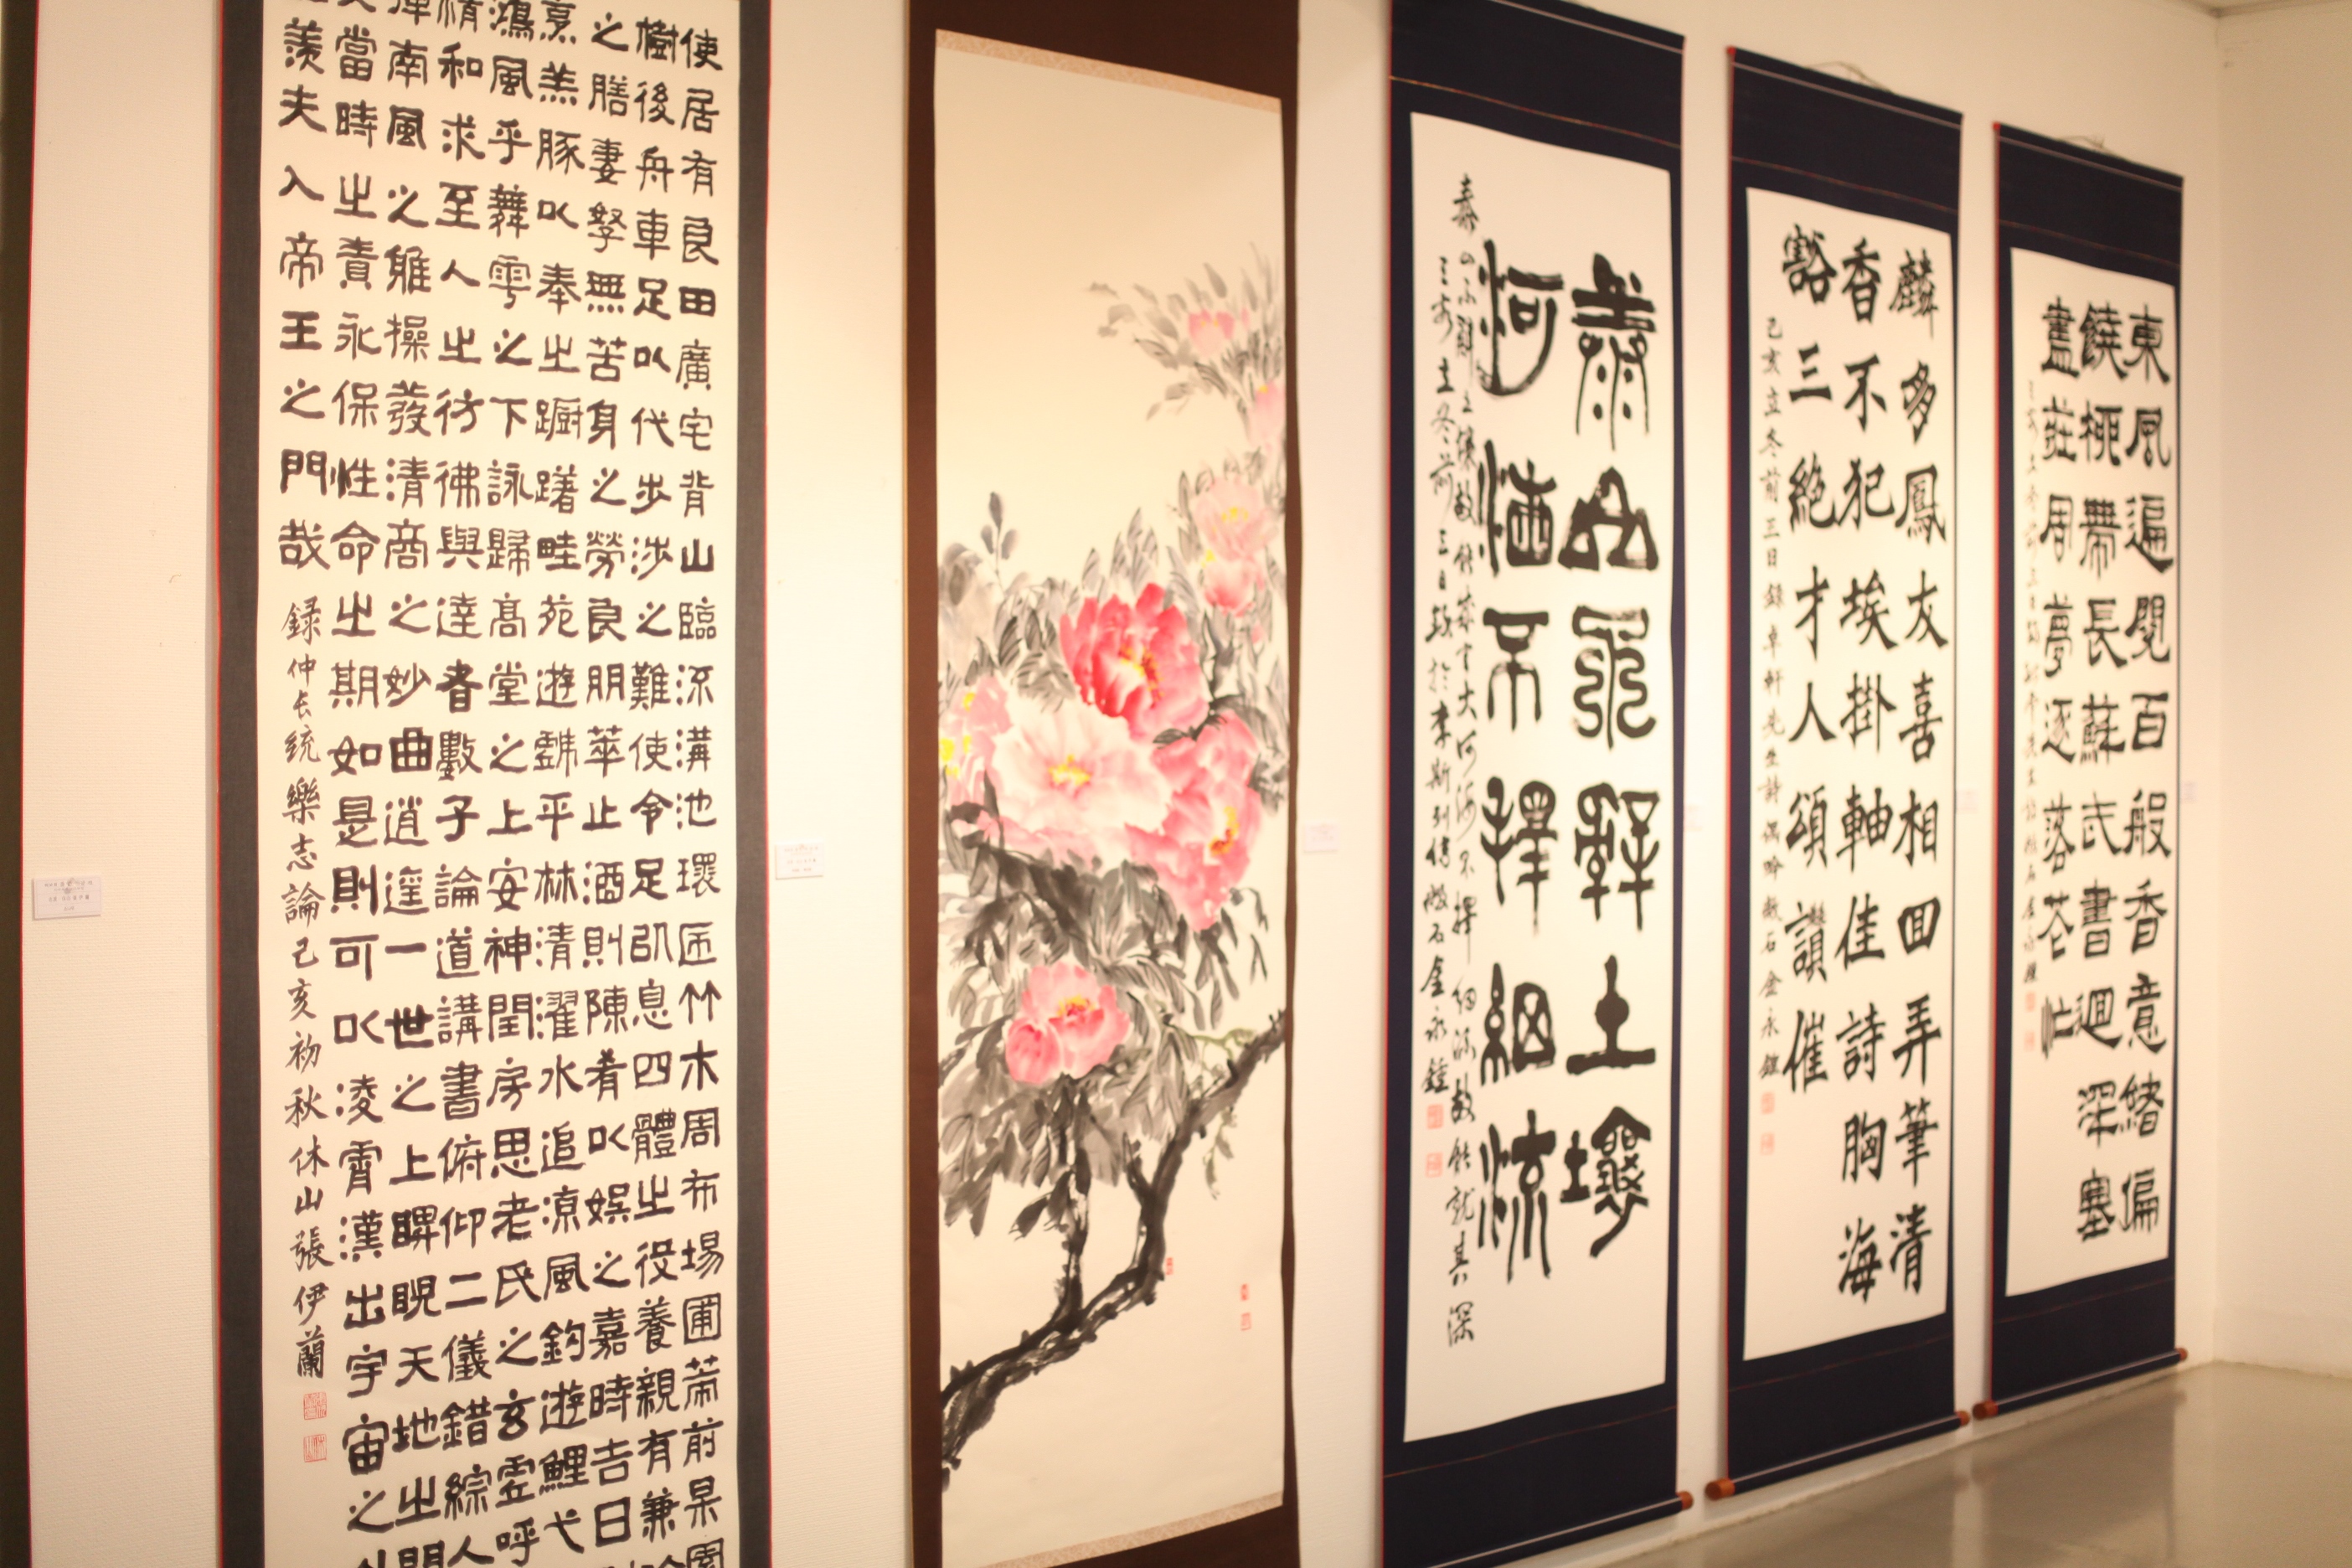 使居有良田廣宅背山臨流溝池環匝竹木周布場圃築前果園
樹後舟車足以代步涉之難使令足以息四體之役養親有兼
之膳妻孥無苦身之勞良朋萃止酒則陳肴以娛之嘉時吉日
烹羔豚以奉之躕躇畦苑遊戲平林清濯水追涼風釣遊鯉弋
鴻風乎舞雩之下詠歸高堂之上安神閨房思老氏之玄虛呼
精和求至人之彷彿與達者數子論道講書俯仰二儀錯綜人
彈南風之雅操發清商之妙曲逍遙一世之上睥睨天地之間
當時之責永保性命之期如是則可以凌霄漢出宇宙之外
羨夫入帝王之門哉 錄仲長統樂志論己亥初秋休山張伊蘭
泰山不辭土壤
河海不擇細流
泰山不辭土壤故能成其大河海不擇細流故能就其深
己亥立冬前三日跋於李斯列傳 石金永鍾
麟多鳳友喜相回弄筆清
香不犯埃掛軸佳詩胸海
豁三絶才人頌讚催
己亥立冬前三日錄卓軒先生詩偶吟 石金永鍾
東風遍閱百般香意緖偏
饒 帶長蘇武書迴深塞
盡莊周夢逐落花忙